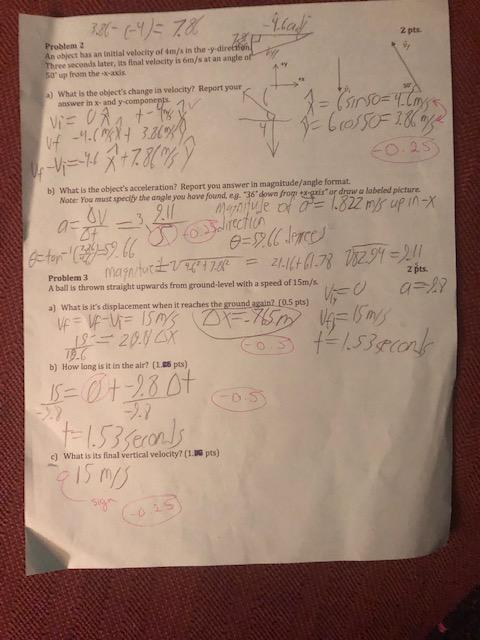 3.86-(-4)= 7.86
-4.6
Problem 2
2 pts.
An object has an initial velocity of 4m/s in the -y-direction.
Three seconds later, its final velocity is 6m/s at an angle of
50° up from the -x-axis.
+y
+x
50°
a) What is the object's change in velocity? Report your
answer in x- and y-components.
x̂ = 6sin50=4.6m/s
ŷ= 6cos50=3.86m/s
-0.25
Vi= 0x̂ + -4m/s ŷ
Vf -4.6m/s x̂ + 3.86m/s ŷ
Vf-Vi=-4.6 x̂ +7.86m/s ŷ
6
4
b) What is the object's acceleration? Report your answer in magnitude/angle format.
Note: You must specify the angle you have found, e.g. "36° down from +x-axis" or draw a labeled picture.
a= ΔV/Δt = 3 9.11/5
-0.25
magnitude of a = 1.822 m/s up in -x
direction
θ=59.66 degrees
θ=tan⁻¹()=59.66
magnitude= √4.6²+7.86² = 21.16+61.78 √82.94 = 9.11
Problem 3
2 pts.
A ball is thrown straight upwards from ground-level with a speed of 15m/s.
a) What is it's displacement when it reaches the ground again? (0.5 pts)
Viy=0 a=-9.8
Vf = Vf-Vi= 15m/s
Δx=-.765m
Vfy=15m/s
-0.5
t=1.53seconds
b) How long is it in the air? (1. pts)
15= 0+-9.8 Δt
-9.8 -9.8
-0.5
t=1.53seconds
c) What is its final vertical velocity? (1. pts)
15 m/s
sign
-0.25